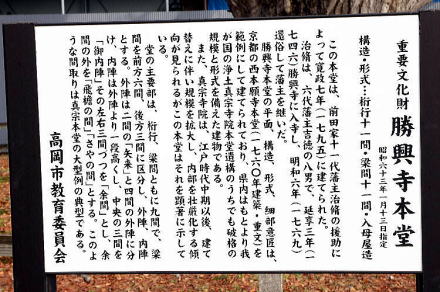 重要文化財 勝興寺本堂
昭和六十三年一月十三日指定
構造・形式…桁行十一間・梁間十一間・入母屋造
この本堂は、前田家十一代藩主治脩の援助に
よって寛政七年(一七九五)に建てられた。
治脩は、六代藩主吉徳の八男で、延享三年(一
七四六)勝興寺に入寺し、明和六年(一七六九)
還俗して藩主を継いだ。
勝興寺本堂の平面、構造、形式、細部意匠は、
京都の西本願寺本堂(一七六〇年建築・重文)を
範例にして建てられており、県内はもとより我
が国の浄土真宗寺院本堂遺構のうちでも破格の
規模と形式を備えた建物である。
また、真宗寺院は、江戸時代中期以後、建て
替えに伴い規模を拡大し、内部を荘厳化する傾
向が見られるがこの本堂はそれを顕著に示して
いる。
堂の主要部は、桁行、梁間ともに九間で、梁
間を前方六間、後方三間に区分し、外陣、内陣
とする。外陣は二間の「矢来」と四間の外陣に分
け、内陣は外陣より一段高くし、中央の三間を
「御内陣」その左右三間づつを「余間」とし、余
間の外を「飛檐の間」「さやの間」とする。このよ
うな間取りは真宗本堂の大型例の典型である。
高岡市教育委員会